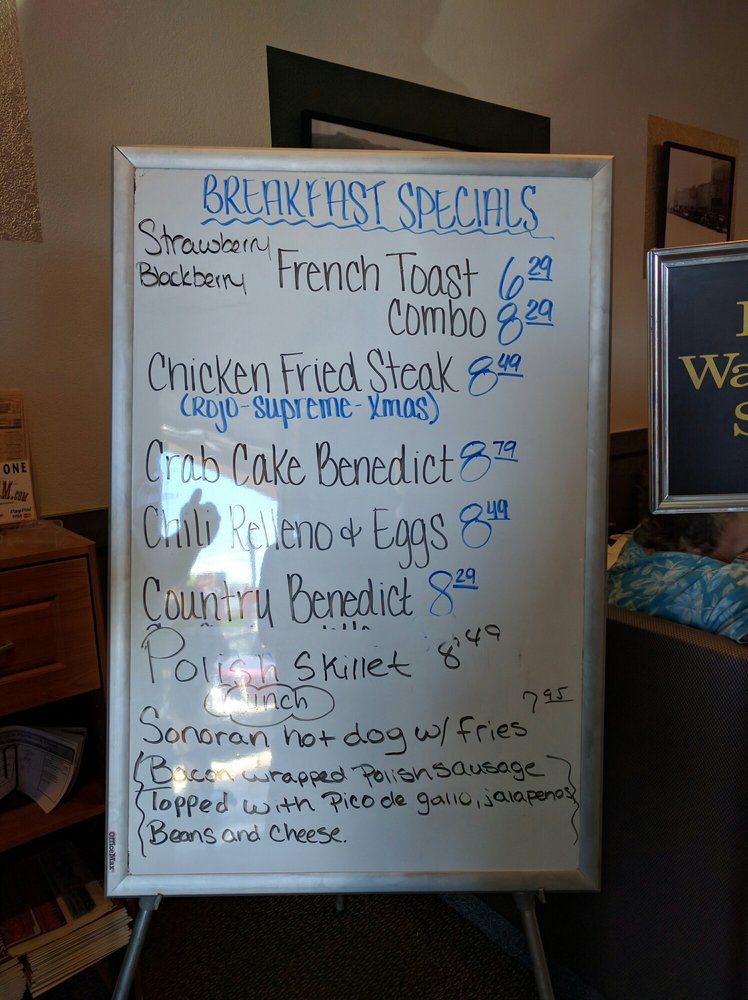 BREAKFAST SPECIALS
Strawberry
Blackberry
French Toast 6 29
Combo 8 29
Chicken Fried Steak 8 49
(Rojo-Supreme-Xmas)
Crab Cake Benedict 8 79
Chili Relleno & Eggs 8 49
Country Benedict 8 29
Polish Skillet 8 49
Lunch
Sonoran hot dog w/ fries 7 95
(Bacon wrapped Polish sausage
Topped with Pico de gallo, jalapenos
Beans and Cheese.
OfficeMax
ONE
PayPal
VISA